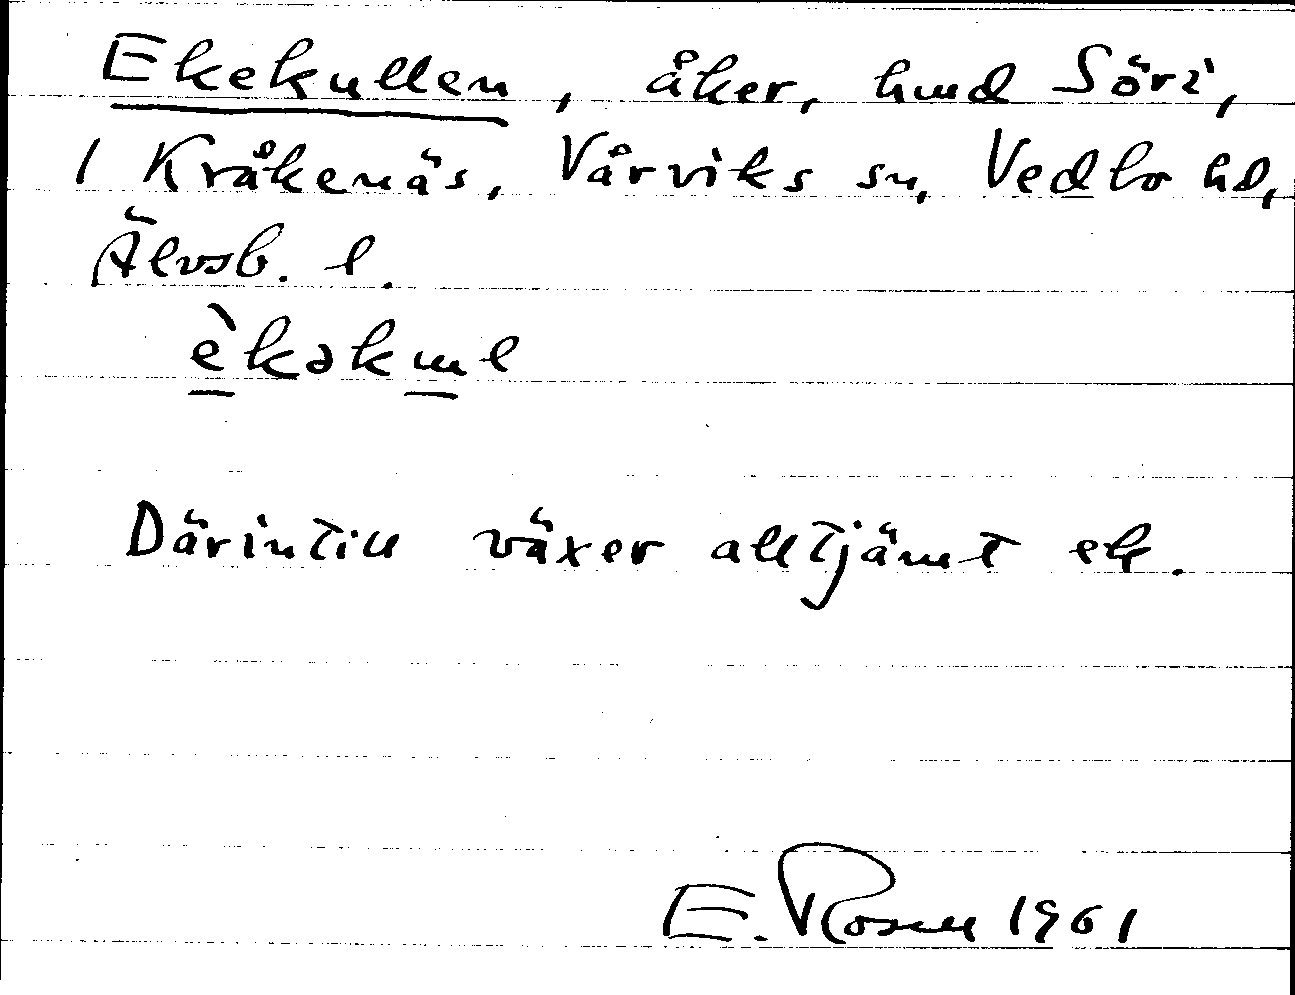 Ekekullen, åker, hmd Söri,
1 Kråkenäs, Vårviks sn, Vedbo hd,
Älvsb. l.
èkəkɯl
Därintill växer alltjämt ek.
E. Rosell 1961